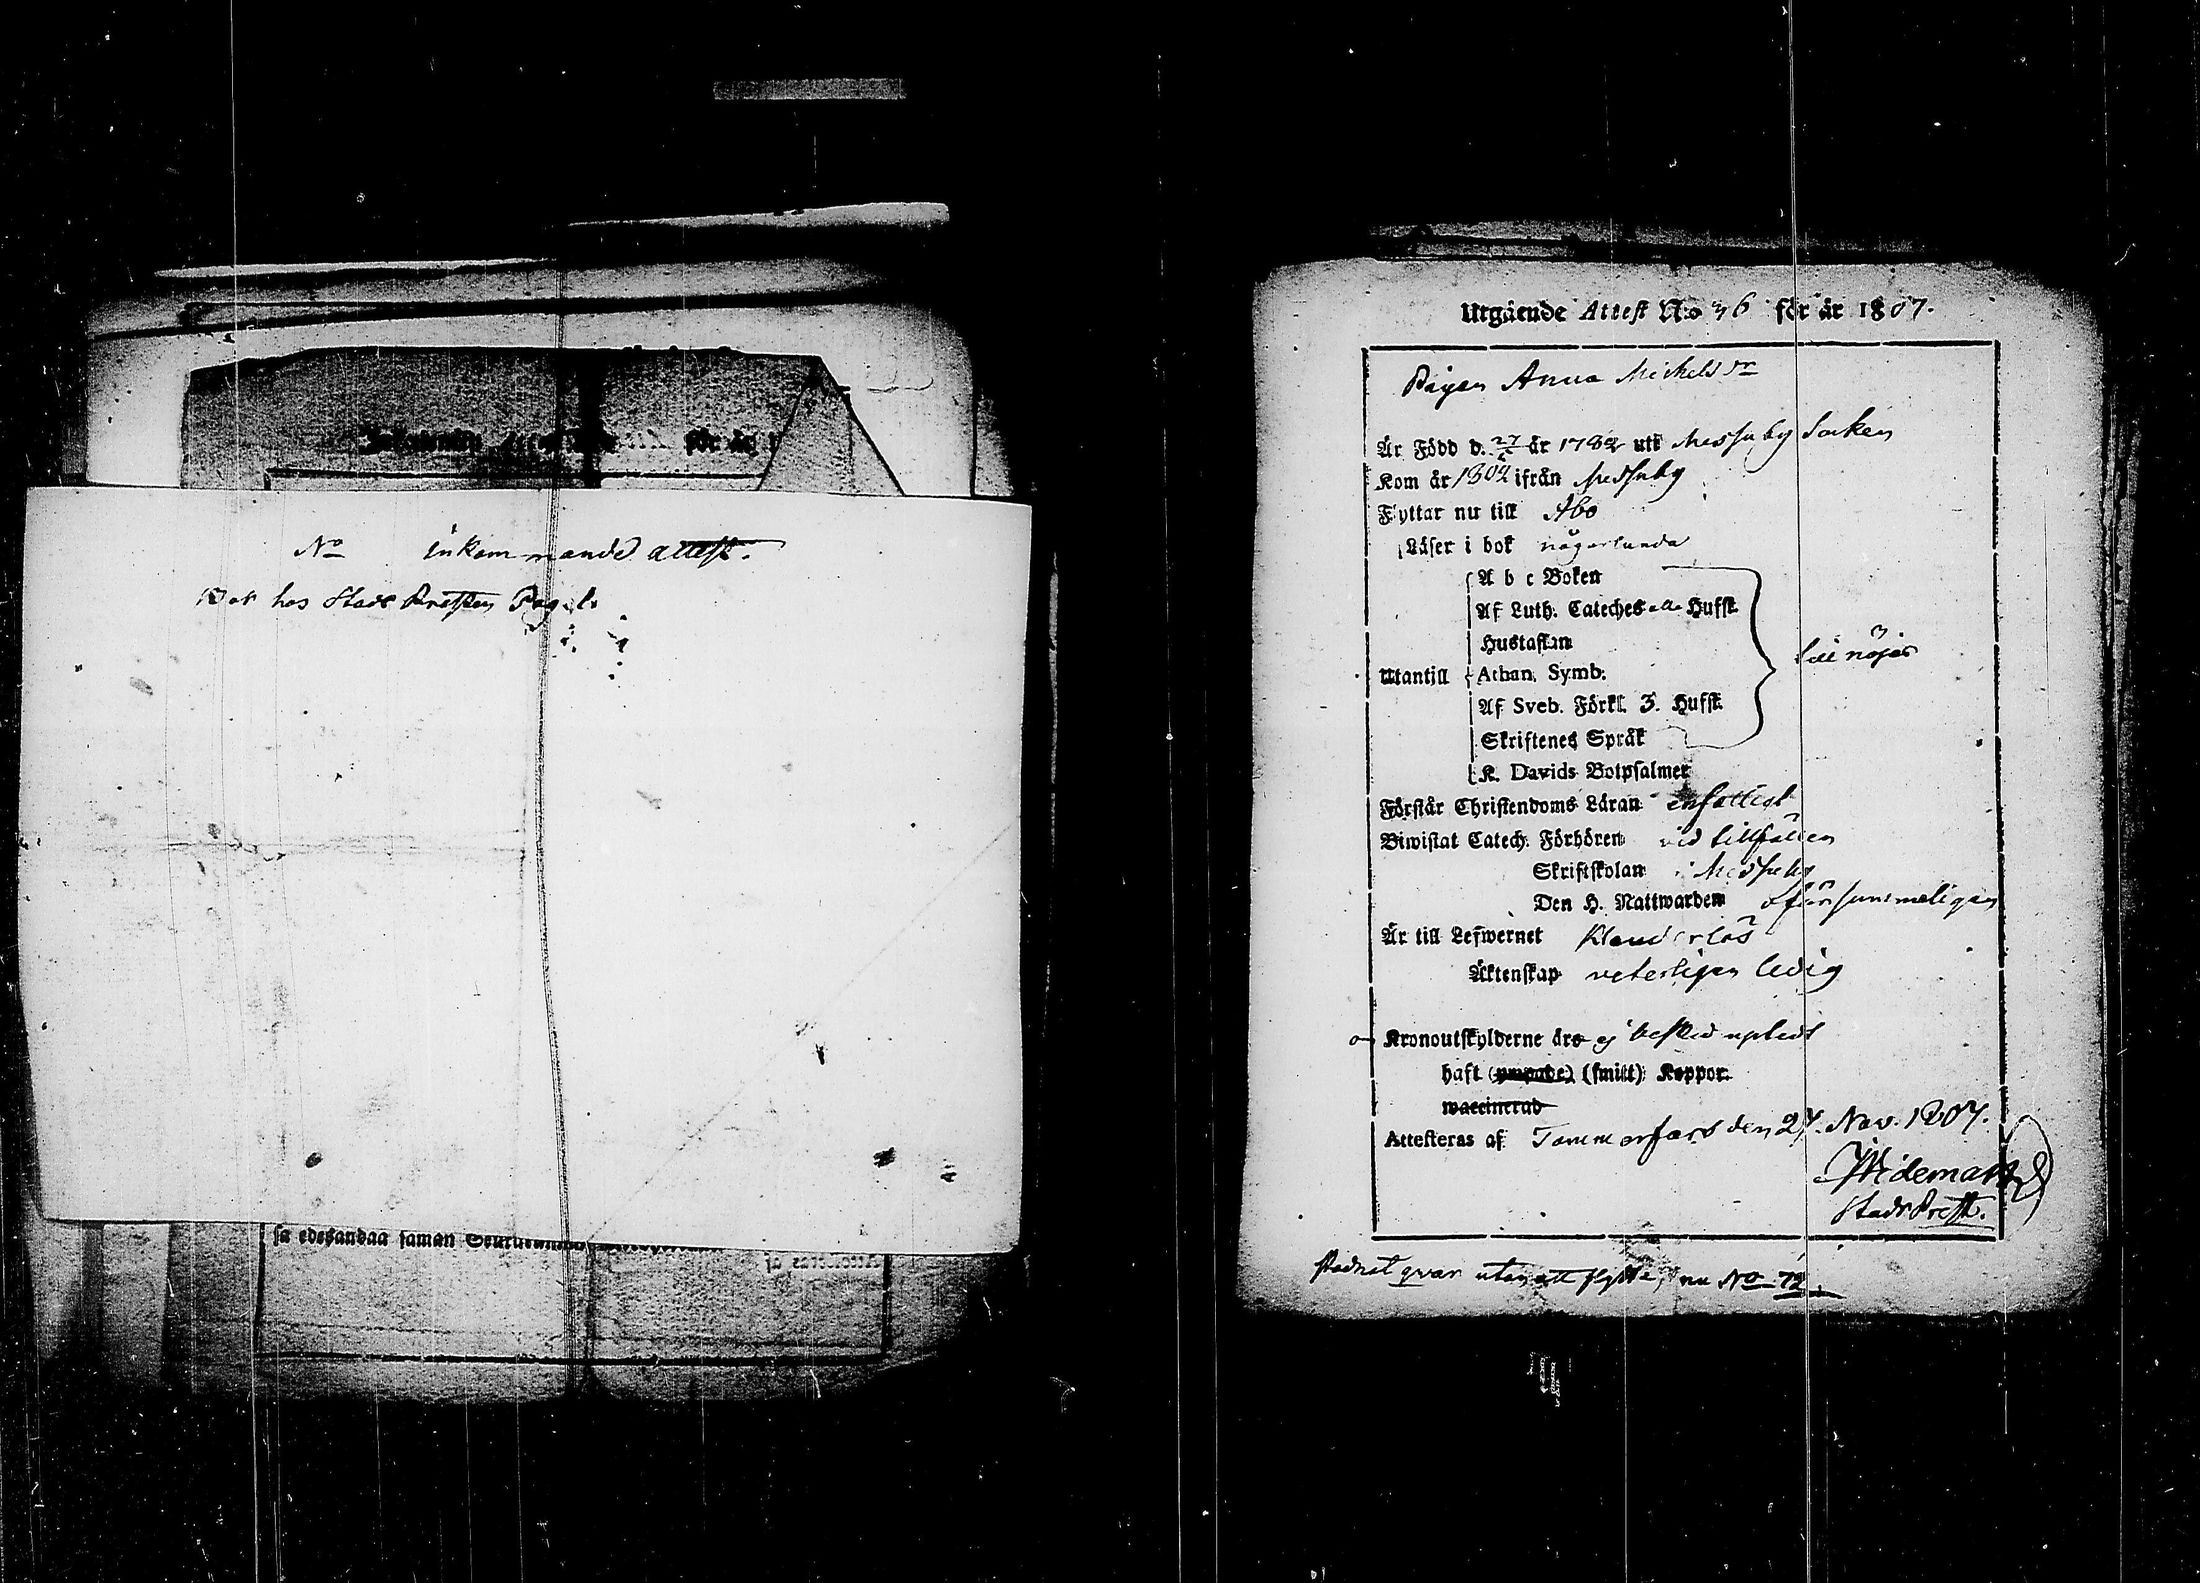 No inkommande attest.
Bor hos Stads Presten
sa edesandaa saman
Attesteras af
Utgående Attest N:o 36 för år 1807.
Pigan Anna Michelsdr
Är Född d. 27 år 1782 uti Messuby Socken
Kom år 1802 ifrån Messuby
Flyttar nu till Åbo
Läser i bok någorlunda
A b c Boken
Af Luth. Cateches alla Hufst.
Hustaflan
Utantill Athan. Symb. till nöjes
Af Sveb. Förkl. 3. Hufst.
Skriftenes Språk
K. Davids Botpsalmer
Förstår Christendoms Läran enfalligt
Biwistat Catech. Förhören vid tillfällen
Skriftskolan i Messuby
Den H. Nattwarden oförsummeligen
Är till Lefwernet Klanderlös
Äktenskap veterligen ledig
Kronoutskylderne äro ej besked upledt
haft (smitt) Koppor.
waccinerad
Attesteras af Tammerfors den 27. Nov. 1807.
Widemark
Stads Prest.
stadnat qvar utan att flytta, nu No 72.